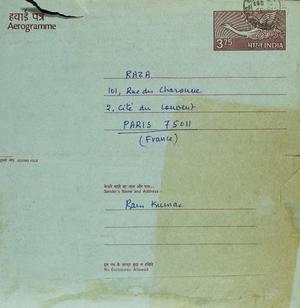 हवाई पत्र
Aerogramme
3.75
भारत INDIA
RAZA
101, Rue du Charonne
2, Cité du Couvent
PARIS 75011
(France)
SECOND FOLD
भेजने वाले का नाम और पता :-
Sender's Name and Address :-
Ram Kumar
इस पत्र के अन्दर कुछ न रखिये
No Enclosures Allowed